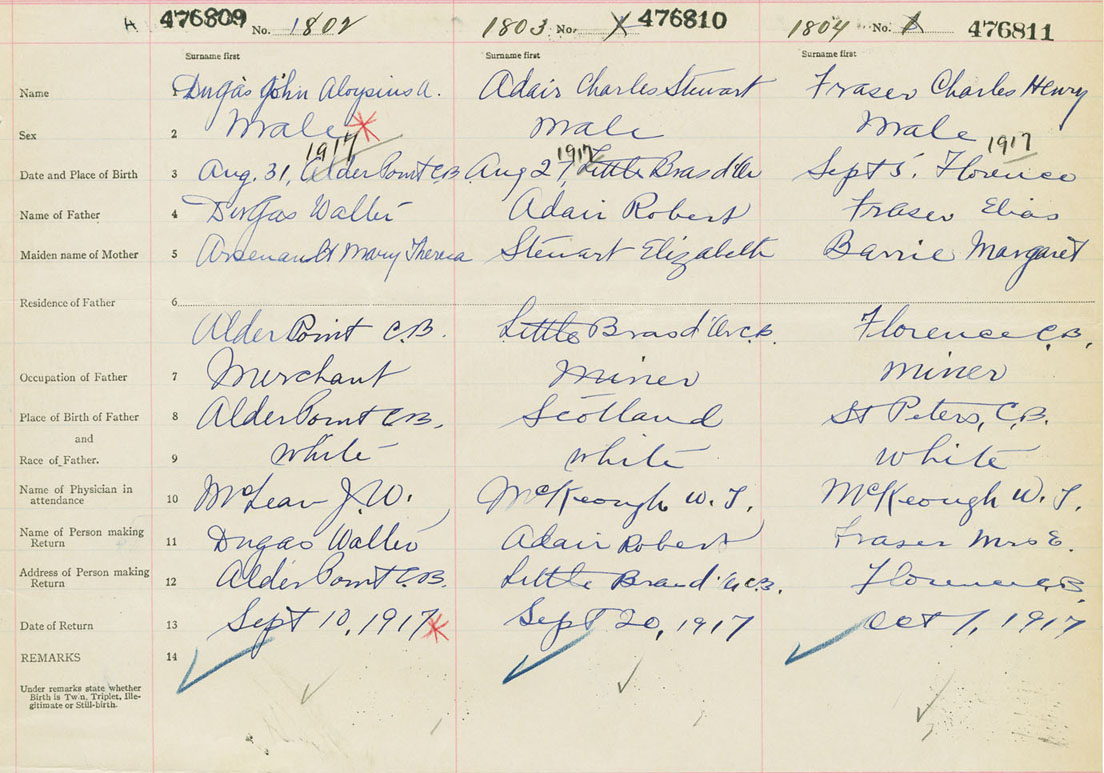 A 476809 No. 1802 1803 No. 1 476810 1804 No. 1 476811
Surname first Surname first Surname first
Name 1 Dugas John Aloysius A. Adair Charles Stewart Fraser Charles Henry
Sex 2 Male Male Male
1917 1917 1917
Date and Place of Birth 3 Aug. 31, Alder Point C.B. Aug 27, Little Bras d'Or Sept 5, Florence
Name of Father 4 Dugas Walter Adair Robert Fraser Elias
Maiden name of Mother 5 Arsenault Mary Theresa Stewart Elizabeth Barrie Margaret
Residence of Father 6
Alder Point C.B. Little Bras d'Or C.B. Florence C.B.
Occupation of Father 7 Merchant Miner Miner
Place of Birth of Father 8 Alder Point C.B. Scotland St Peters, C.B.
and
Race of Father. 9 White White White
Name of Physician in
attendance 10 McLean J.W. McKeough W. J. McKeough W. J.
Name of Person making
Return 11 Dugas Walter Adair Robert Fraser Mrs E.
Address of Person making
Return 12 Alder Point C.B. Little Bras d'Or C.B. Florence C.B.
Date of Return 13 Sept 10, 1917 Sept 20, 1917 Oct 1, 1917
REMARKS 14
Under remarks state whether
Birth is Twin, Triplet, Ille-
gitimate or Still-birth.